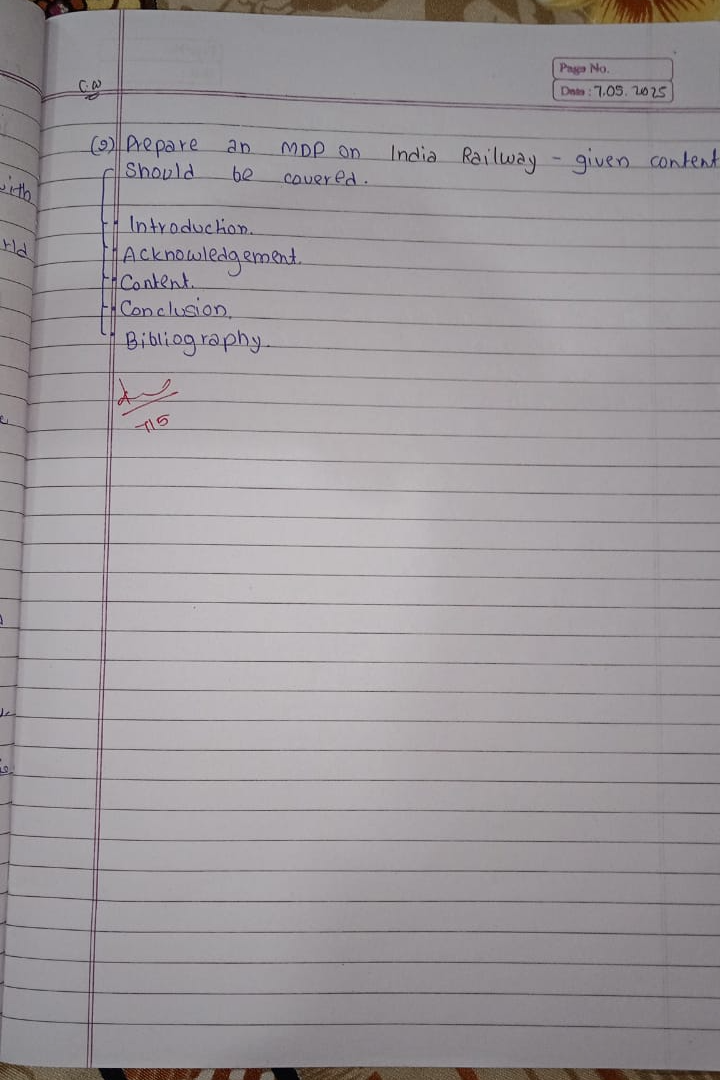 C.W
Page No.
Date : 7.05. 2025
(2) Prepare an MDP on India Railway - given content
Should be covered.
with
rld
Introduction.
Acknowledgement.
Content.
Conclusion.
Bibliography.
7/5